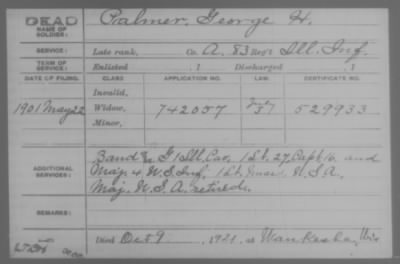 DEAD
NAME OF SOLDIER:
Palmer, George H.
SERVICE:
Late rank, Co. A. 83 Reg't Ill. Inf.
TERM OF SERVICE:
Enlisted , 1 Discharged , 1
DATE OF FILING. CLASS. APPLICATION NO. LAW. CERTIFICATE NO.
Invalid,
1901 May 22 Widow, 742057 529933
Minor,
ADDITIONAL SERVICES:
Band G 1 Ill. Cav. 1 Lt. 27, Capt 16 and
Maj. 4 U.S. Inf. 1 Lt. U.S.A.
Maj. U.S.A. retired.
REMARKS:
Died Oct 9, 1921, at Waukesha, Wis